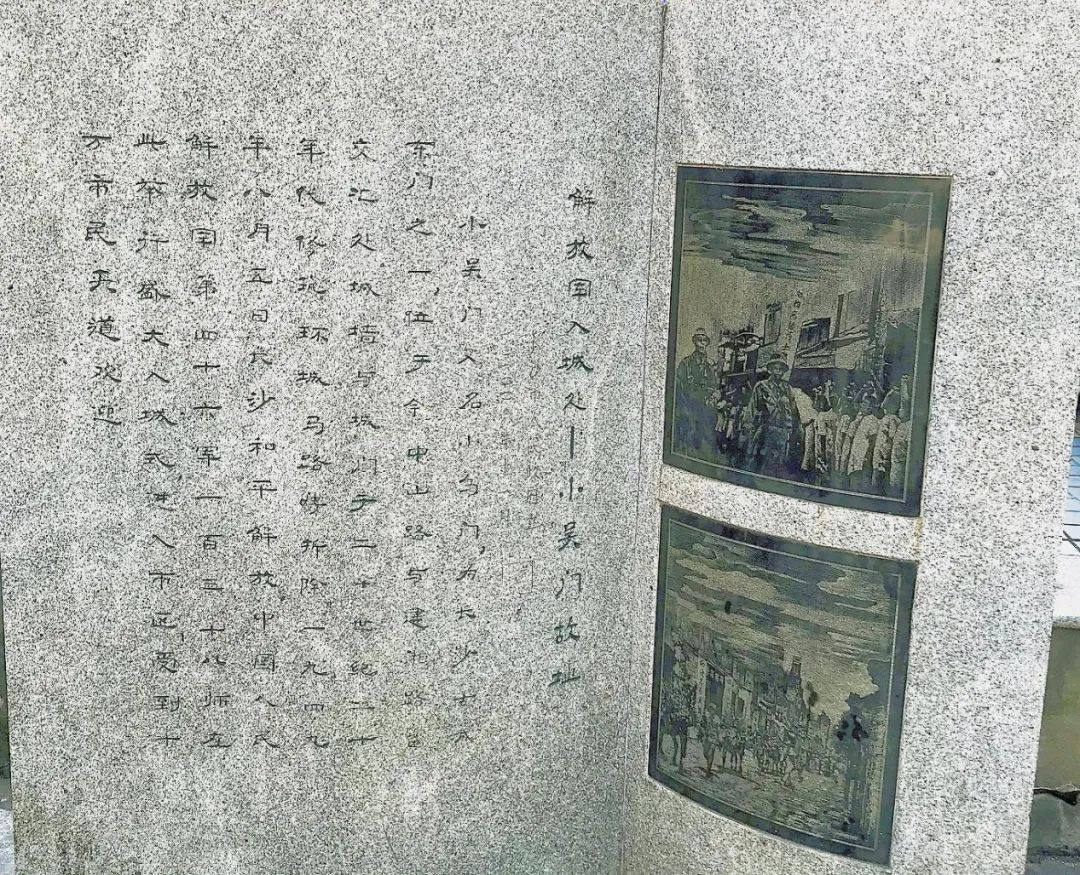 解放军入城处——小吴门故址
小吴门又名小乌门，为长沙
东门之一，位于今中山路与建湘路
交汇处城墙与城门于二十世纪二十
年代修筑环城马路时拆除一九四九
年八月五日长沙和平解放中国人民
解放军第四十六军一百三十八师在
此举行盛大入城式，进入市区，受到十
万市民夹道欢迎